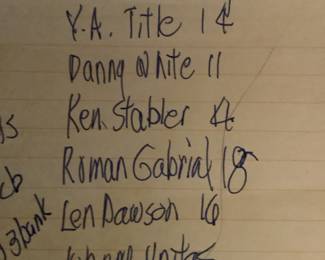 Y.A. Title 14
Danny White 11
Ken Stabler
Roman Gabrial 18
Len Dawson 16
3bank